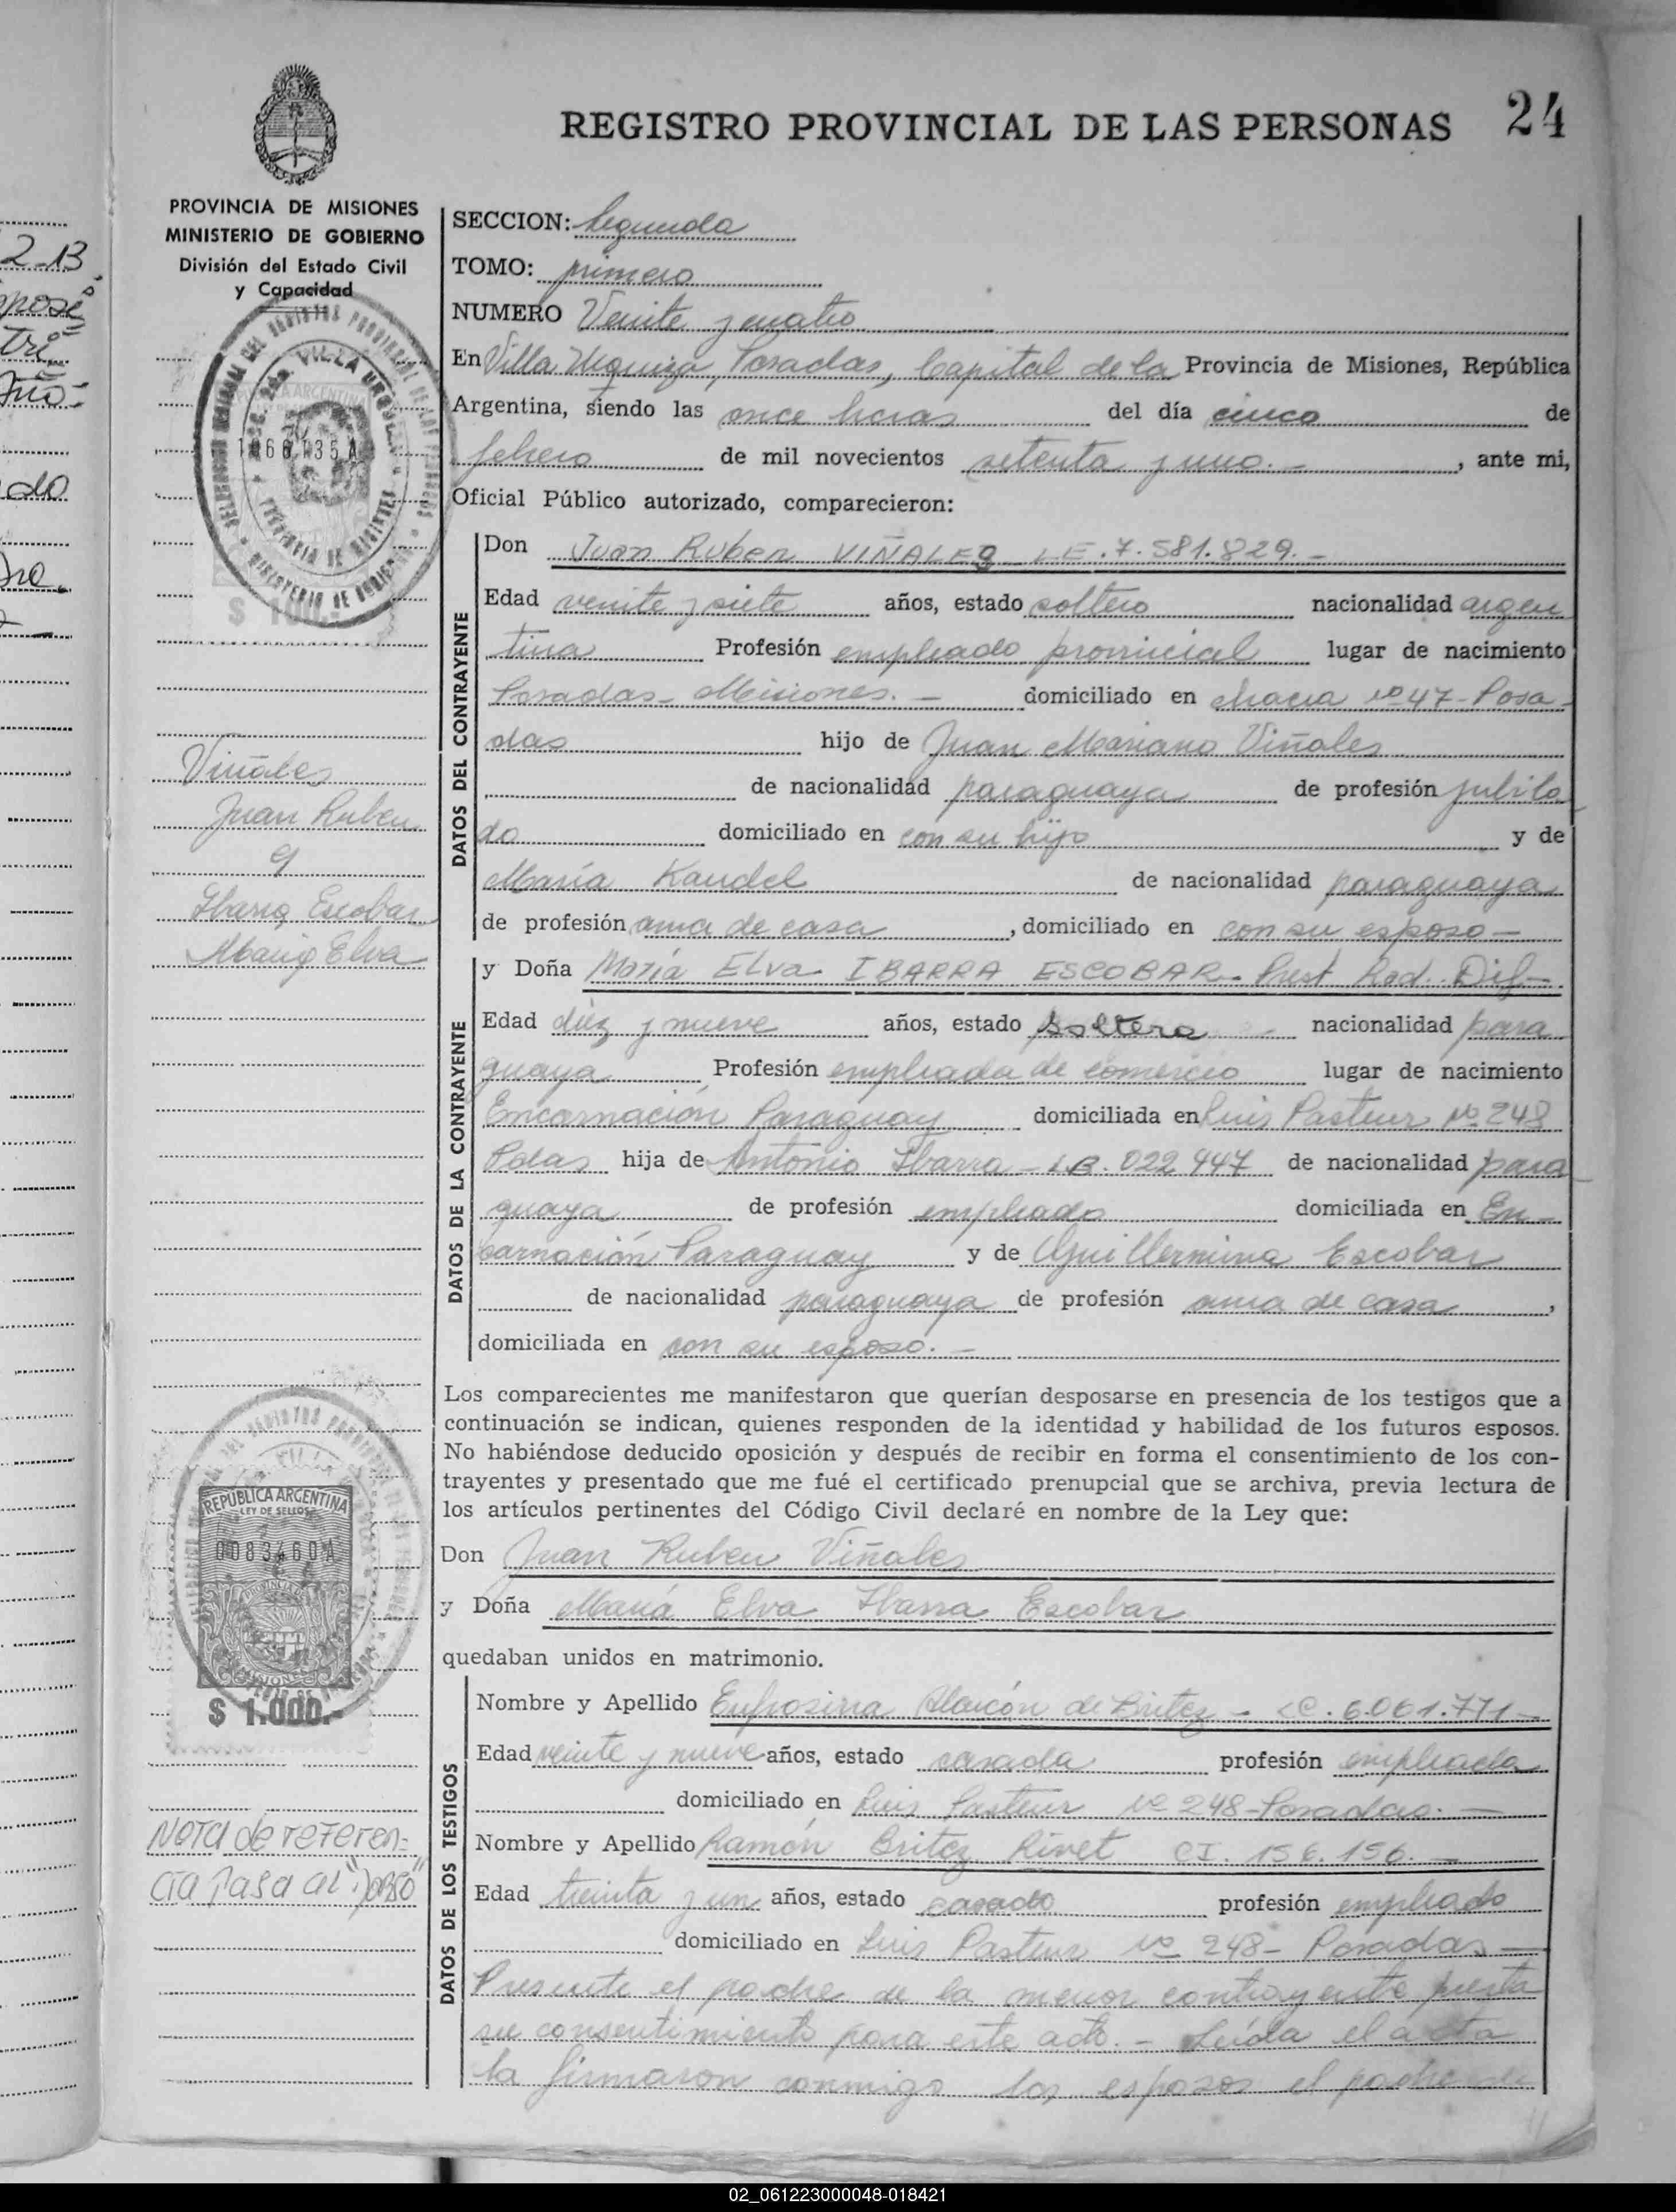 24
REGISTRO PROVINCIAL DE LAS PERSONAS
PROVINCIA DE MISIONES
MINISTERIO DE GOBIERNO
División del Estado Civil
y Capacidad
SECCION: Segunda
TOMO: primero
NUMERO Veinte y cuatro
En Villa Urquiza, Posadas, Capital de la Provincia de Misiones, República
Argentina, siendo las once horas del día cinco de
febrero de mil novecientos setenta y uno.- , ante mi,
Oficial Público autorizado, comparecieron:
DATOS DEL CONTRAYENTE
Don Juan Ruben VIÑALES LE.7.581.829.-
Edad veinte y siete años, estado soltero nacionalidad argen
tina Profesión empleado provincial lugar de nacimiento
Posadas-Misiones.- domiciliado en chacra nº 47-Posa-
das hijo de Juan Mariano Viñales
de nacionalidad paraguaya de profesión jubila
do domiciliado en con su hijo y de
María Kandel de nacionalidad paraguaya
de profesión ama de casa , domiciliado en con su esposo-
DATOS DE LA CONTRAYENTE
y Doña María Elva IBARRA ESCOBAR- Prest Rad. Dif-
Edad diez y nueve años, estado soltera nacionalidad para
guaya Profesión empleada de comercio lugar de nacimiento
Encarnación Paraguay domiciliada en Luis Pasteur Nº 248
Pdas hija de Antonio Ibarra - 022.447 de nacionalidad para
guaya de profesión empleado domiciliada en En-
carnación Paraguay y de Guillermina Escobar
de nacionalidad paraguaya de profesión ama de casa ,
domiciliada en con su esposo.-
Los comparecientes me manifestaron que querían desposarse en presencia de los testigos que a
continuación se indican, quienes responden de la identidad y habilidad de los futuros esposos.
No habiéndose deducido oposición y después de recibir en forma el consentimiento de los con-
trayentes y presentado que me fué el certificado prenupcial que se archiva, previa lectura de
los artículos pertinentes del Código Civil declaré en nombre de la Ley que:
Don Juan Ruben Viñales
y Doña María Elva Ibarra Escobar
quedaban unidos en matrimonio.
DATOS DE LOS TESTIGOS
Nombre y Apellido Eufrosina Alarcón de Britez - LC. 6.061.771-
Edad veinte y nueve años, estado casada profesión empleada
domiciliado en Luis Pasteur Nº 248-Posadas.-
Nombre y Apellido Ramón Britez Rivet CI. 156.156.-
Edad treinta y un años, estado casado profesión empleado
domiciliado en Luis Pasteur Nº 248- Posadas-
Presente el padre de la menor contrayente presta
su consentimiento para este acto.- Leída el acta
la firmaron conmigo los esposos el padre
Viñales
Juan Ruben
y
Ibarra Escobar
Maria Elva
REPUBLICA ARGENTINA
LEY DE SELLOS
$ 1.000.-
Nota de referen-
cia pasa al "Dorso"
02_061223000048-018421